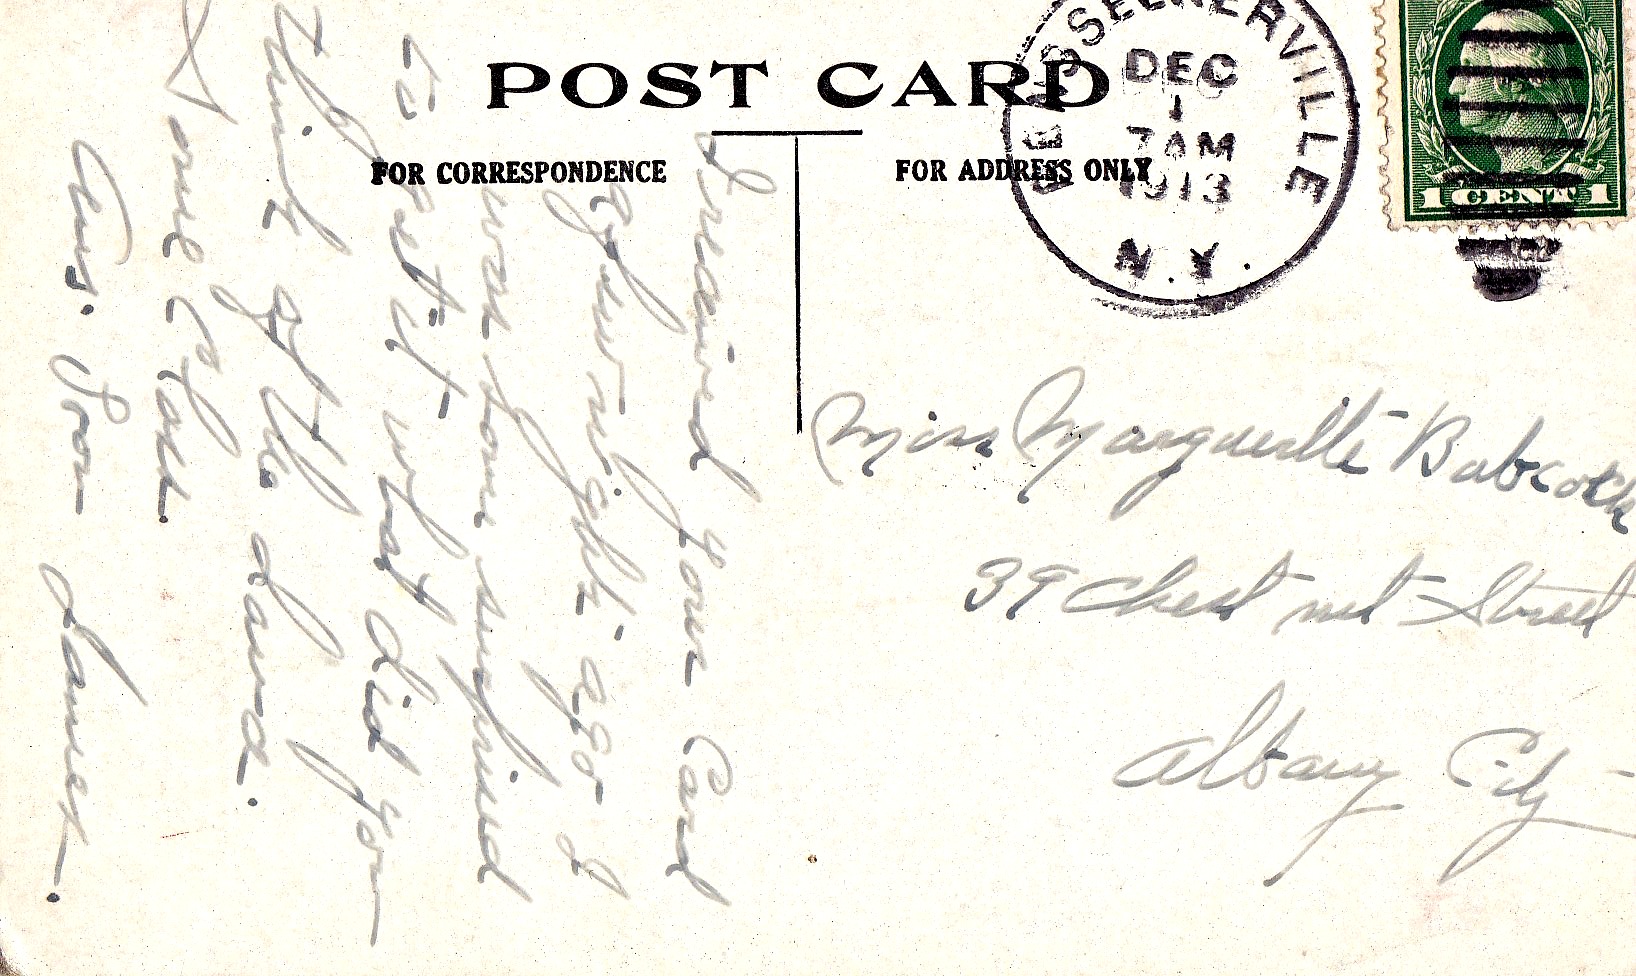 POST CARD
FOR CORRESPONDENCE
FOR ADDRESS ONLY
RENSSELAERVILLE
DEC
1
7 AM
1913
N.Y.
1 CENT 1
I received your Card
a fournight ago I
was some surprised
to get it what did you
think of the dance.
Some Class.
Ans. Soon James.
Miss Marguerite Babcock
39 Chestnut Street
Albany City